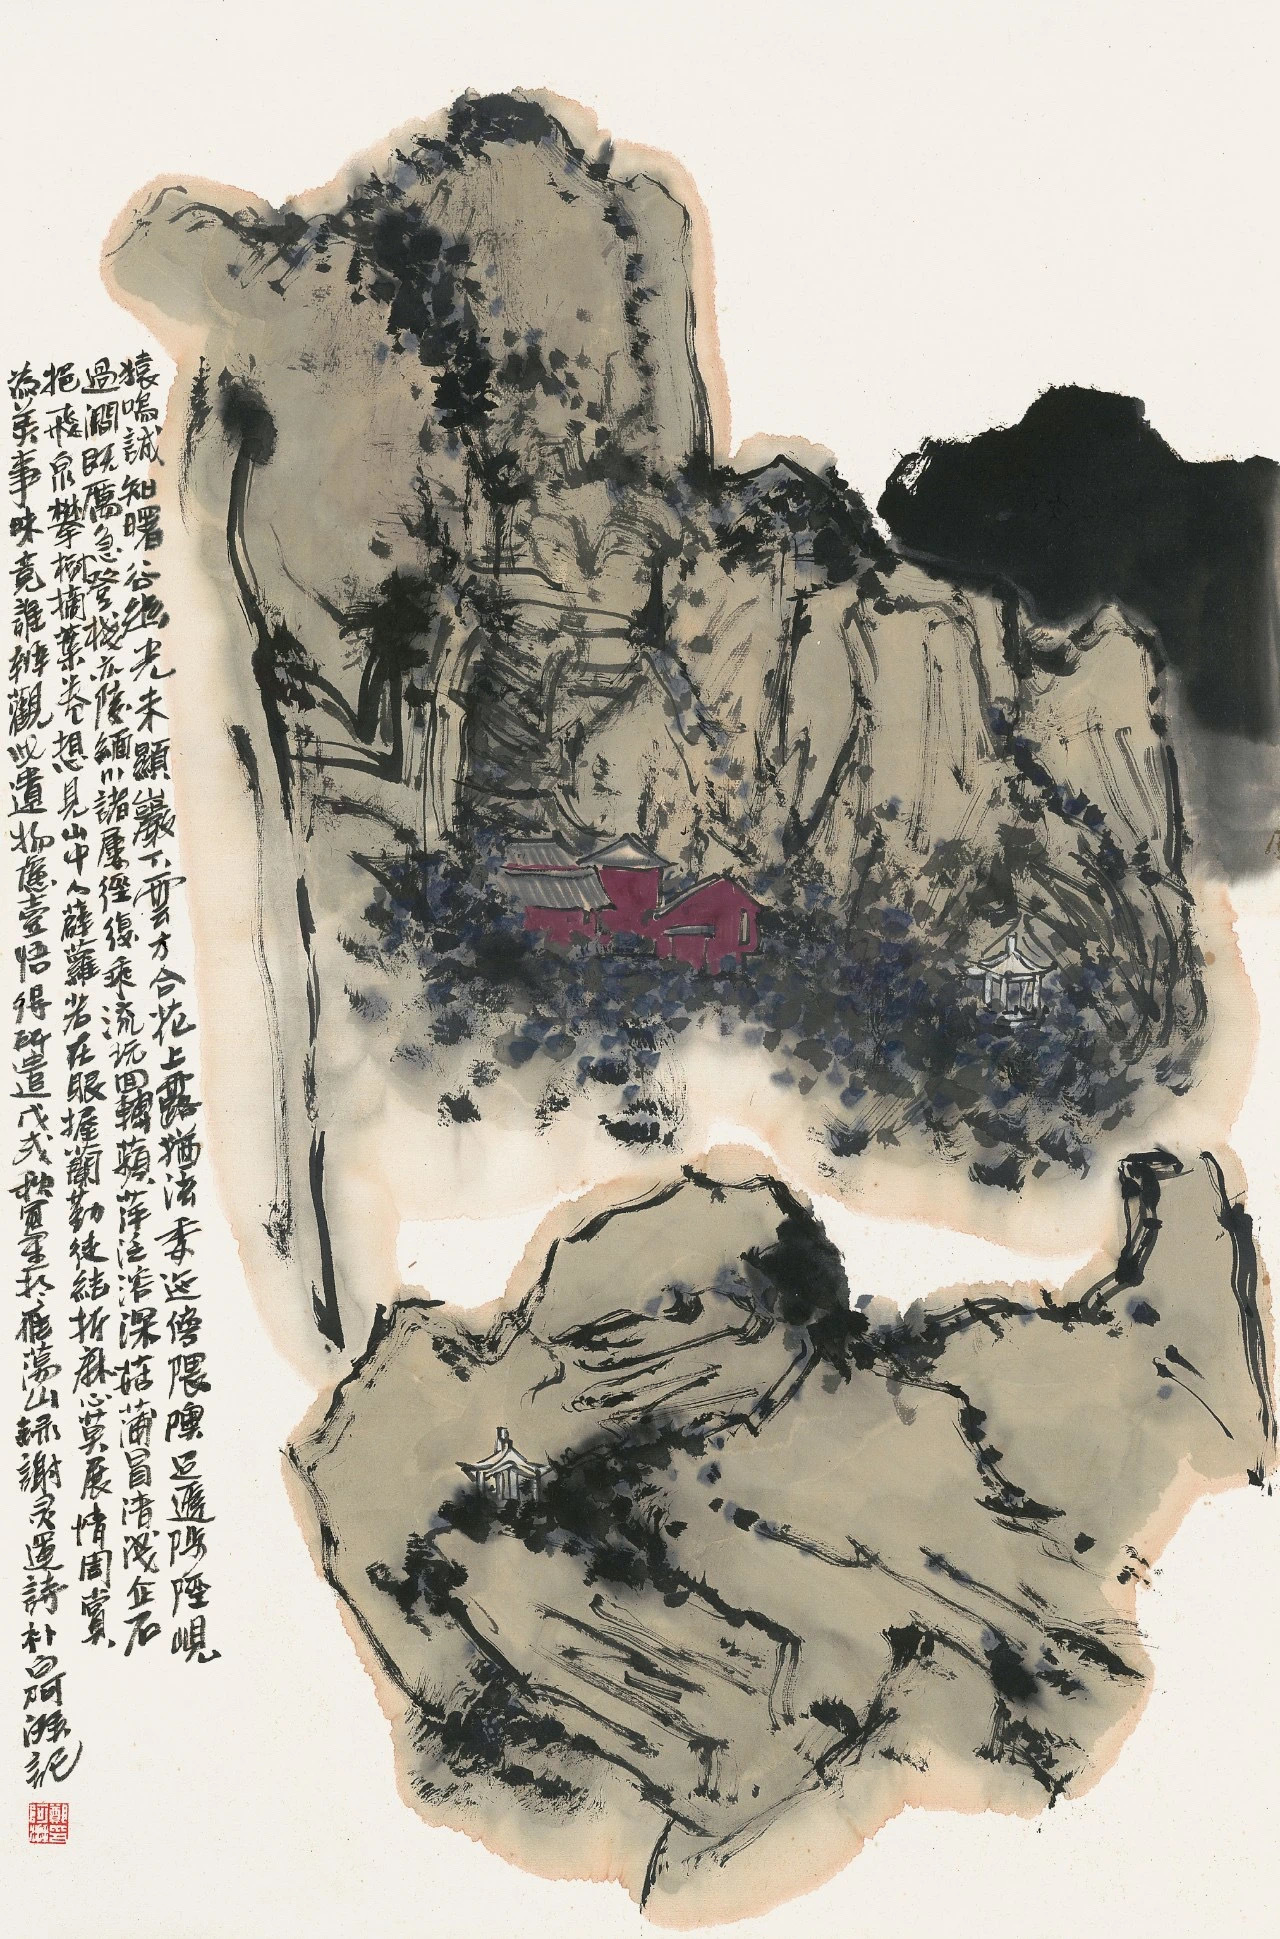 猿鳴誠知曙谷幽光未顯巖下雲方合花上露猶泫委迤傍隈隩迢遞陟陘峴
過澗既厲急登棧亦陵緬川諸屢徑復乘流玩回轉蘋萍泛沉深菰蒲冒清淺企石
挹飛泉攀樹摘葉卷想見山中人薜蘿若在眼握蘭勤徒結折麻心莫展情用賞
為美事昧竟誰辨觀此遺物慮壹悟得所遣戊戌秋寫生於雁蕩山録謝灵運詩朴白阿湃記